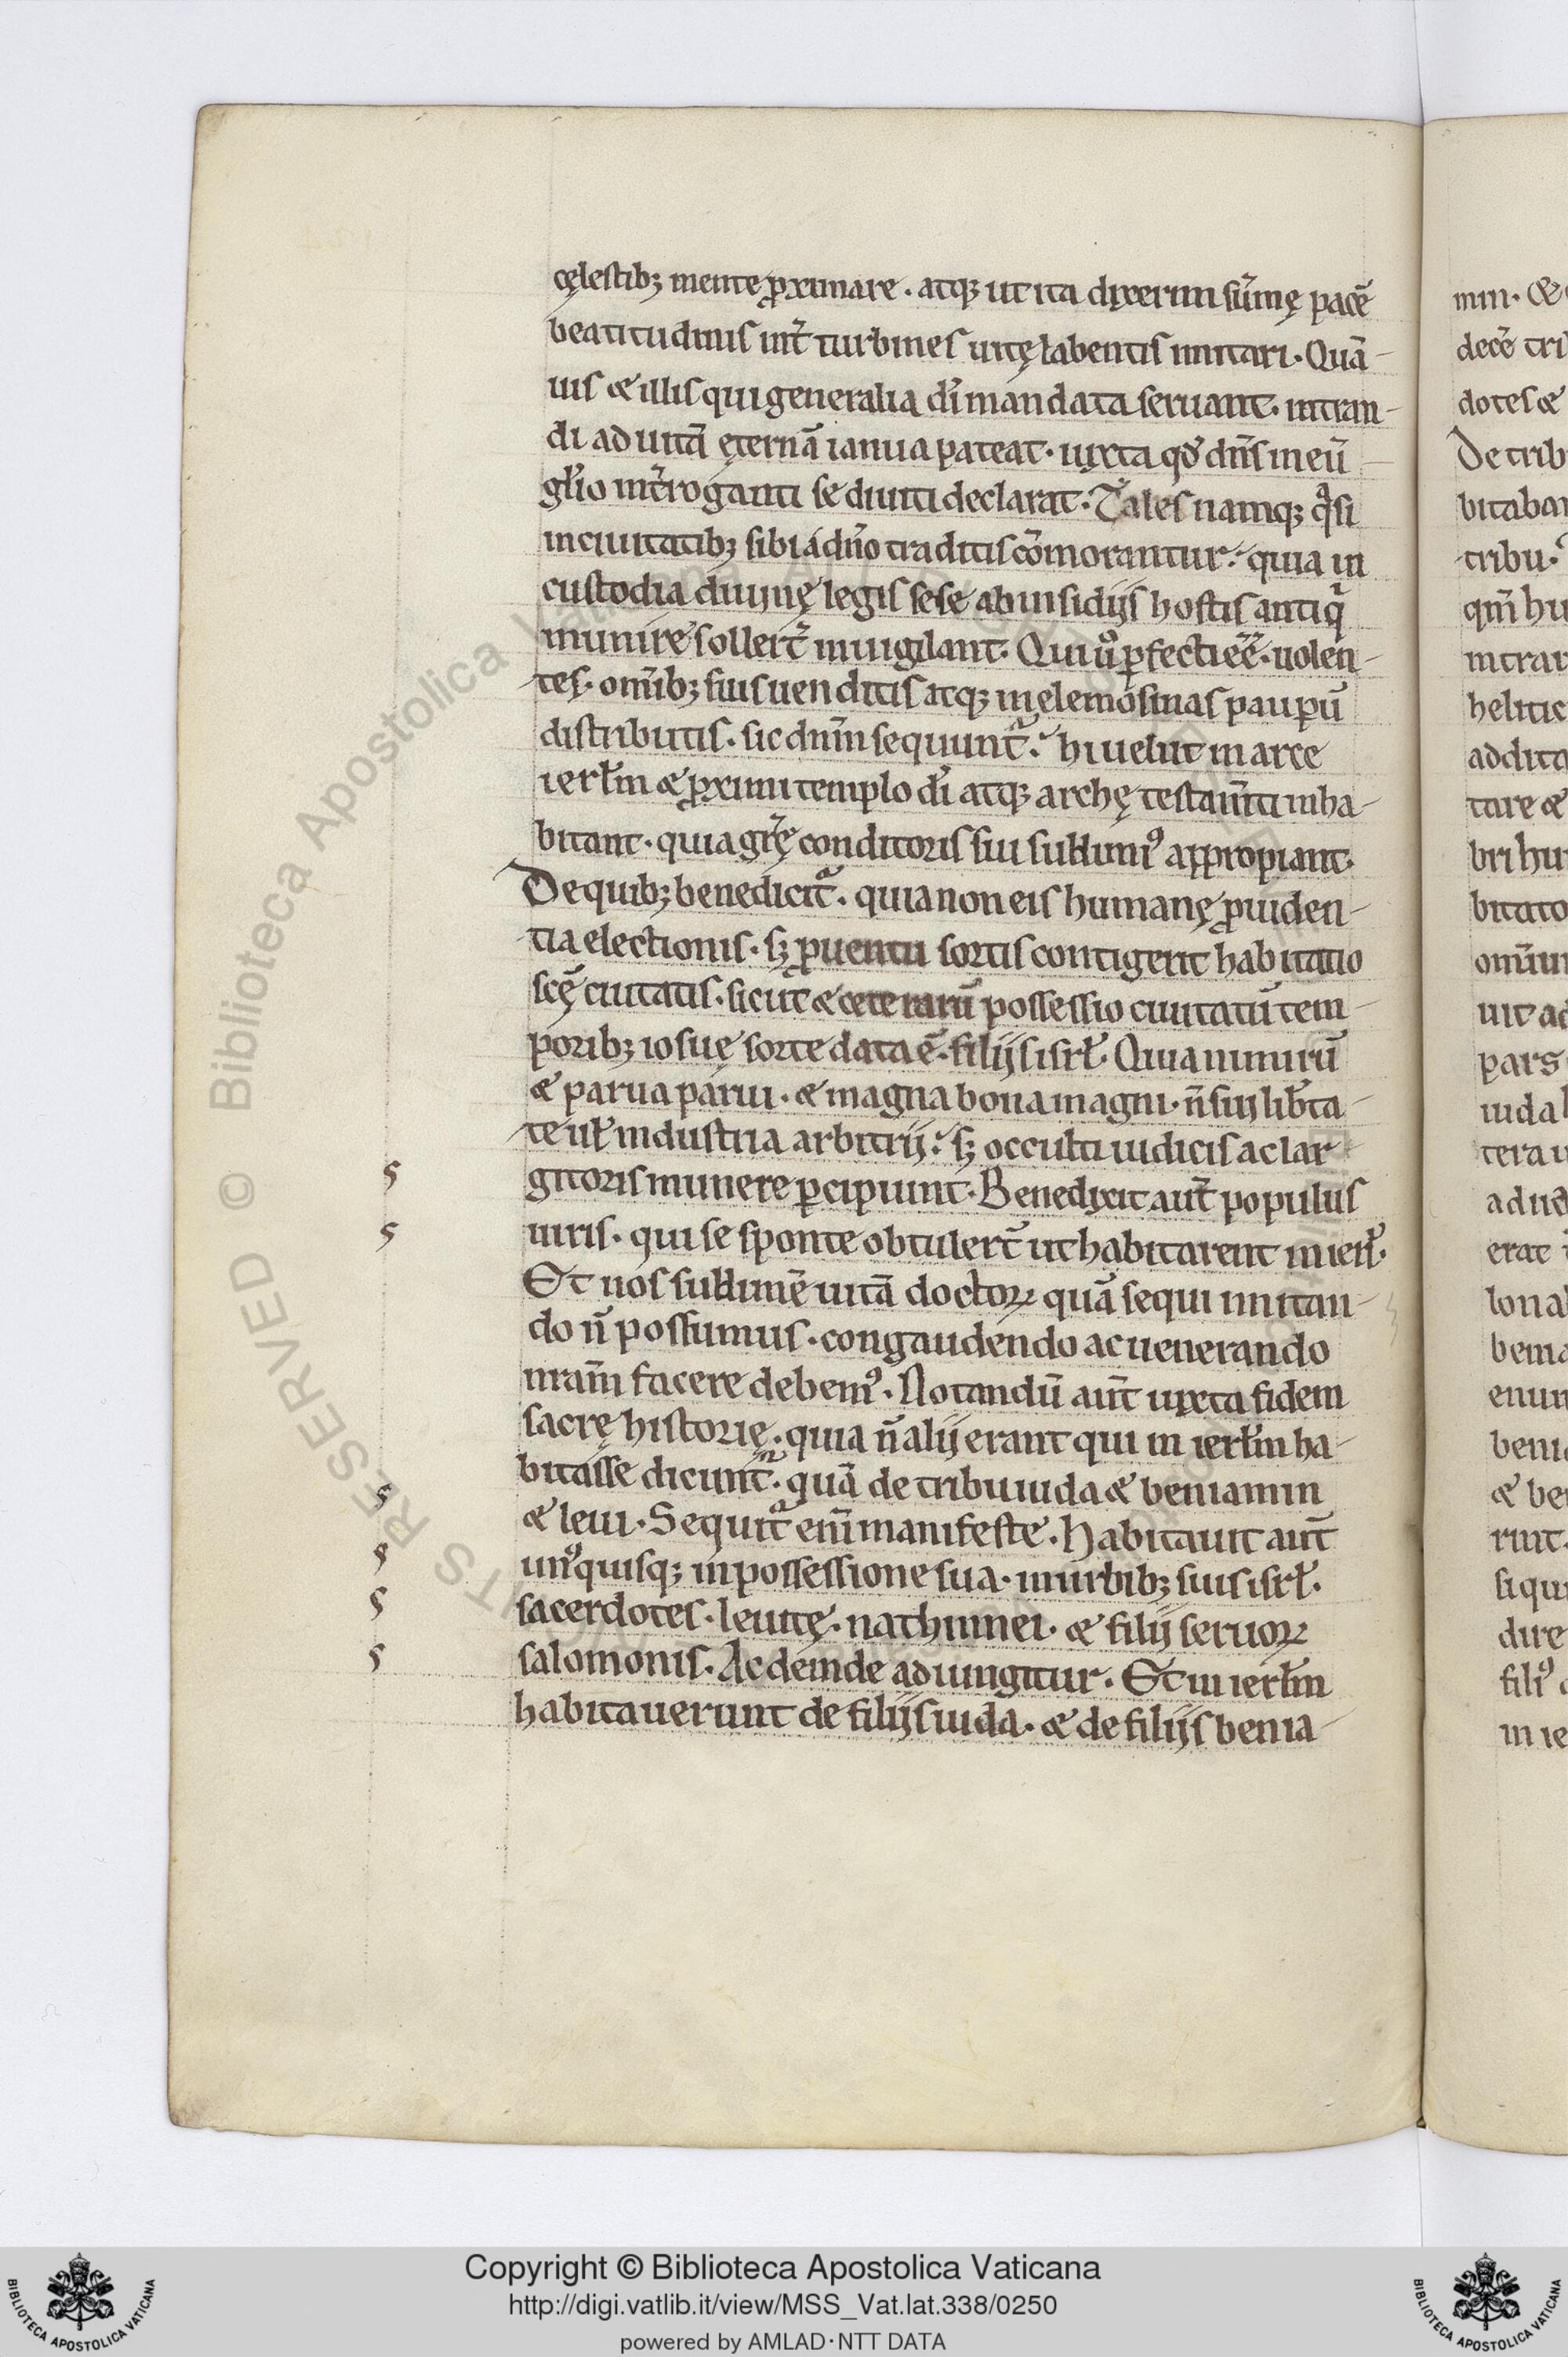 cęlestibꝫ mente ꝓximare. atqꝫ ut ita dixerim sūmę pacē
beatitudinis int̄ turbines uitę labentis imitari. Quā-
uis & illis qui generalia dī mandata seruant. intran-
di ad uitā ęternā ianua pateat. iuxta qđ dn̄s in eū-
gl̄io int̄roganti se diuiti declarat. Tales namqꝫ q̄si
in ciuitatibꝫ sibi á dn̄o traditis cōmorantur. quia in
custodia diuinę legis sese ab insidijs hostis antiqͥ
munire sollert̄ inuigilant. Qui ů ꝑfecti eē̄. uolen-
tes. om̄ibꝫ suis uenditis atqꝫ in elemosinas pauꝑū
distributis. sic dn̄m sequunt᷑. hi uelut in arce
ierłm & ꝓximi templo dī atqꝫ archę testam̄ti inha-
bitant. quia gr̄ę conditoris sui sublimiꝰ appropiant.
De quibꝫ bene dicit᷑. quia non eis humanę ꝓuiden-
tia electionis. sꝫ ꝓuentu sortis contigerit habitatio
scę̄ ciuitatis. sicut & ceterarū possessio ciuitatū tem-
poribꝫ iosuę sorte data ē. filijs isrł. Quia nimirū
& parua parui. & magna bona magni. n̄ sui lib̄ta-
te uł industria arbitrij. sꝫ occulti iudicis ac lar-
gitoris munere ꝑcipiunt. Benedixit aut̄ populus
uiris. qui se sponte obtulert̄ ut habitarent in ierł.
Et nos sublimē uitā doctoꝝ quā sequi imitan-
do n̄ possumus. congaudendo ac uenerando
nram̄ facere debemꝰ. Notandū aut̄ iuxta fidem
sacrę historię. quia n̄ alij erant qui in ierłm ha-
bitasse dicunt᷑. quā de tribu iuda & beniamin
& leui. Sequit᷑ eni᷑ manifeste. habitauit aut̄
unꝰquisqꝫ in possessione sua. in urbibꝫ suis isrł.
sacerdotes. leuitę. nathinnei. & filij seruoꝝ
salomonis. Ac deinde adiungitur. Et in ierłm
habitauerunt de filijs iuda. & de filijs benia-
Copyright © Biblioteca Apostolica Vaticana
http://digi.vatlib.it/view/MSS_Vat.lat.338/0250
powered by AMLAD·NTT DATA